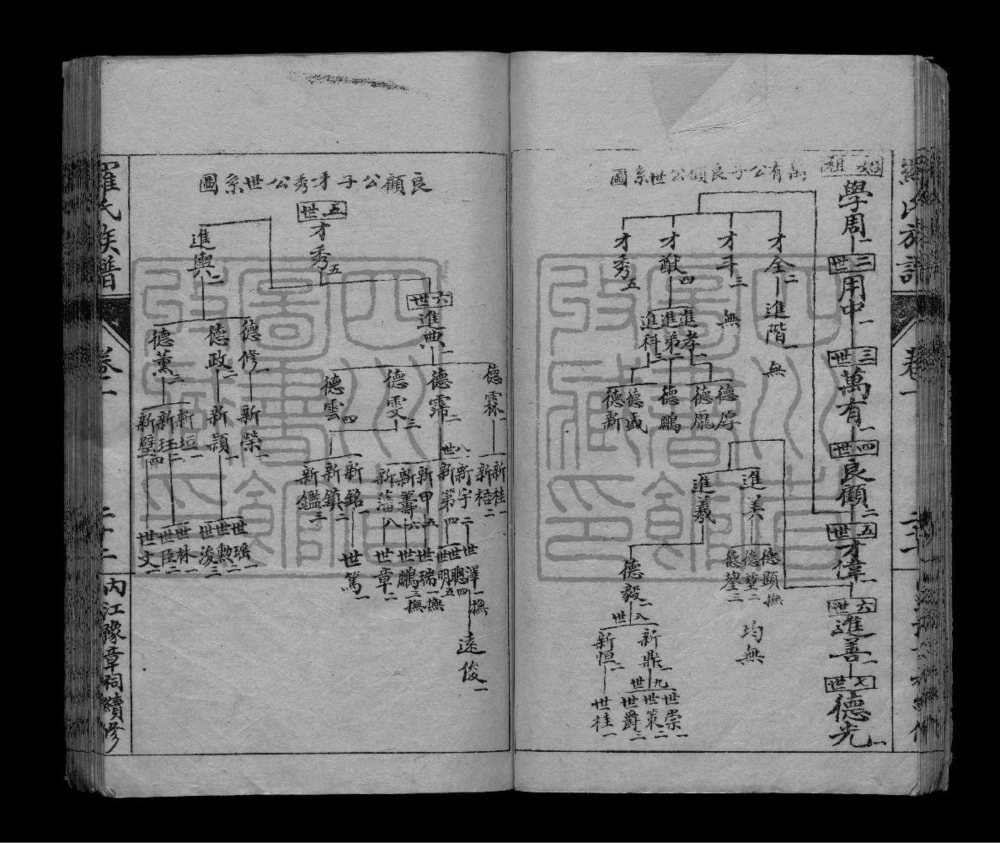 始祖
學周一
二世
用中一
三世
萬有一
四世
良顧二
五世
才偉一
六世
進善一
七世
德光一
萬有公子良顧公世系圖
才全二
進階一
無
才斗三
無
才猷四
進孝一
德厚
德龐
進弟二
德鵬
進科三
德盛
德新
才秀五
進美
德顯撫
德重二
均無
進義
德毅一
八世
新鼎一
九世
世崇一
世策二
世爵三
新恒二
世桂一
良顧公子才秀公世系圖
五世
才秀五
六世
進典一
德霖一
新桂一
新梧二
德霈二
八世
新宇二
世澤一撫
遠俊一
世聰四
新第四
世明五
新甲五
世瑞一撫
新籌六
世鵬三撫
新藩八
世章二
德雯三
德雲四
新銘一
世篤一
新鎮二
新鑑三
進輿二
德修一
新榮一
德政
新穎一
世瑞一
世勳二
世浚三
德薰三
新垣一
新玨二
世林一
世臣二
世文一
新璧四
羅氏族譜
卷二
二十二
內江豫章祠續修